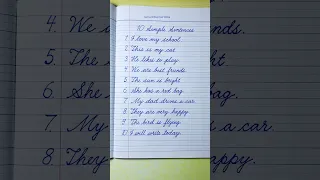 10 Simple Sentences
1. I love my school.
2. This is my cat.
3. He likes to play.
4. We are best friends.
5. The sun is bright.
6. She has a red bag.
7. My dad drives a car.
8. They are very happy.
9. The bird is flying.
10. I will write today.